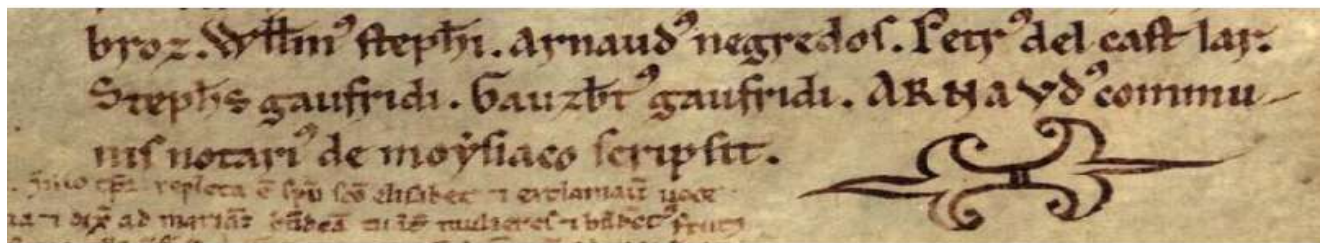 broz. Willm᾽ steph̄i. Arnaud᾽ negredos. Petr᾽ del cast lar.
Steph̄s gaufridi. Gauzb̄t᾽ gaufridi. ARNAVD᾽ commu-
nis notari᾽ de moẏsiaco scripsit.
repleta ē sp̄u sc̄o elisabet ⁊ exclamauit uoce
⁊ dix̄ ad mariā mulieres ⁊